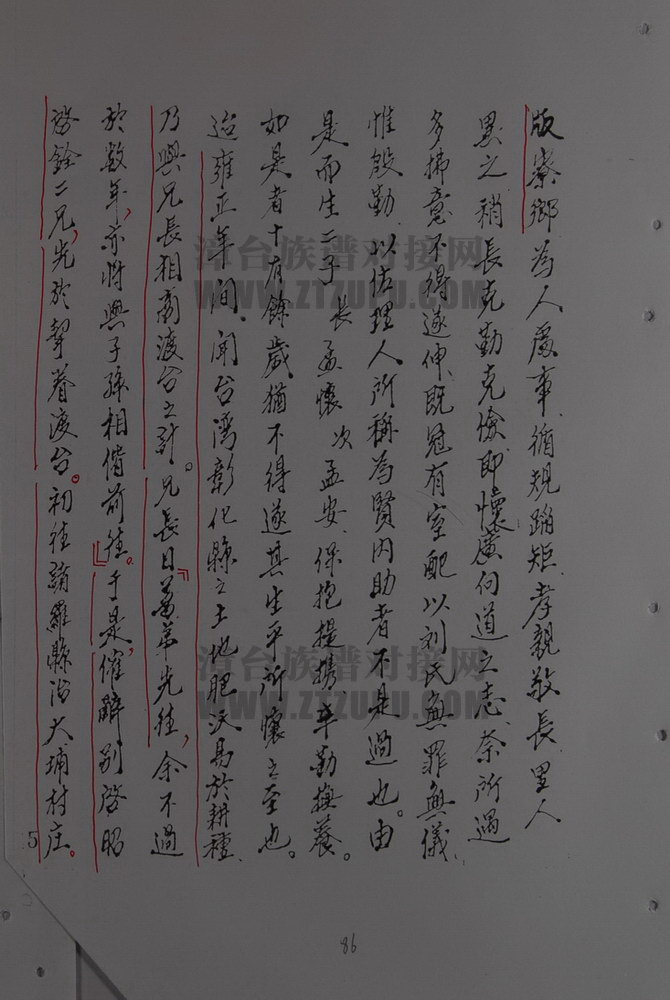 版寮鄉為人處事、循規蹈矩、孝親敬長、里人
異之稍長克勤克儉即懷廣向道之志、奈所遇
多拂意不得遂伸既冠有室配以刘氏無罪無儀、
惟殷勤以佐理人所稱為賢內助者不是過也。由
是而生二子長孟懷次孟安、保抱提攜、辛勤撫養。
如是者十有餘歲猶不得遂其生平所懷之至也。
迨雍正年間、聞台灣彰化縣之土地肥沃易於耕種、
乃與兄長相商渡台之計。兄長曰『葛弟先往，余不過
於数年，亦將與子孫相偕前往。』于是，催辭別啓昭
啓銓二兄，先於挈眷渡台。初往諸羅縣治大埔村庄。
5
86
漳台族谱对接网
WWW.ZTZUPU.COM
漳台族谱对接网
WWW.ZTZUPU.COM